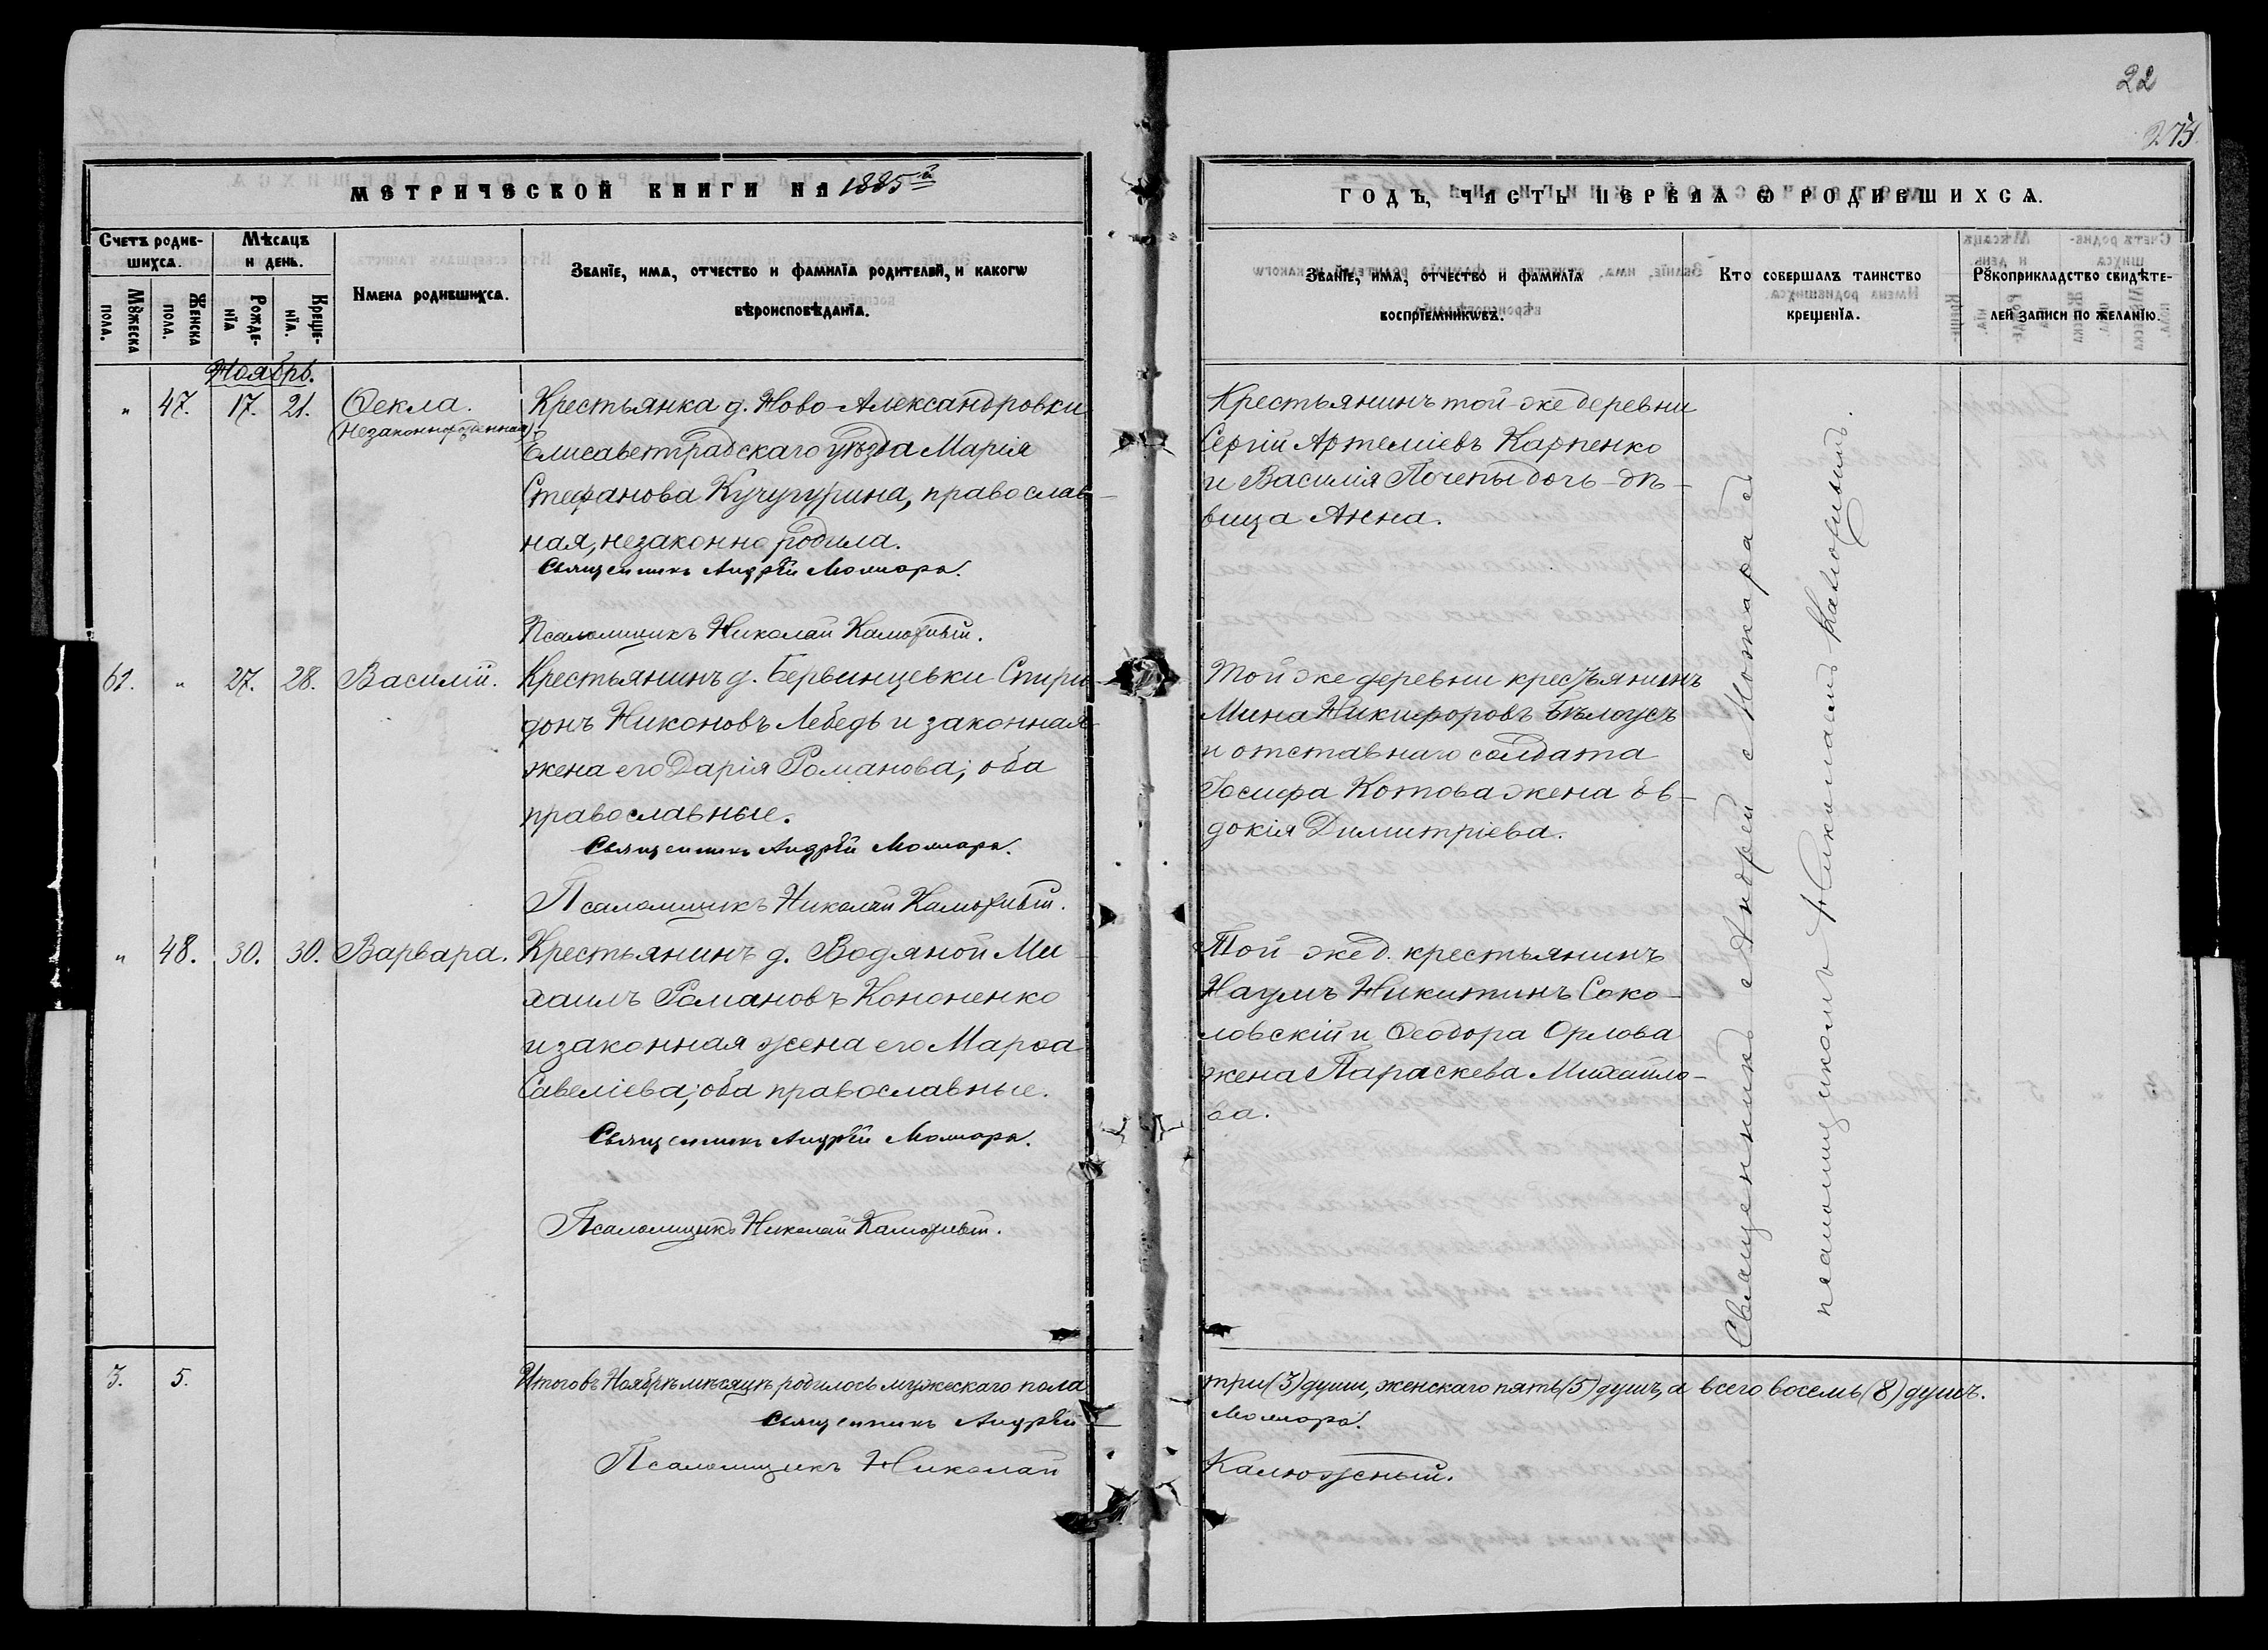 22
275
МЕТРИЧЕСКОЙ КНИГИ НА 1885й
ГОДЪ, ЧАСТЬ ПЕРВАЯ Ѡ РОДИВШИХСЯ.
Счетъ родив-
шихся.
Мѣсяцъ
и день.
Имена родившихся.
Званїе, имя, отчество и фамилїя родителей, и какогѡ
вѣроисповѣданїя.
Мꙋжеска
пола.
Женска
пола.
Рожде-
нїя
Креще-
нїя.
Званїе, имя, отчество и фамилїя
воспрїемникѡвъ.
Кто совершалъ таинство
крещенїя.
Рꙋкоприкладство свидѣте-
лей записи по желанїю.
Ноябрь.
" 47. 17. 21. Ѳекла.
(Незаконнорожденная)
Крестьянка д. Ново-Александровки
Елисаветградскаго уѣзда Марія
Стефанова Кучугурина, православ-
ная, незаконно родила.
Священникъ Андрей Можара.
Псаломщикъ Николай Калюжный.
Крестьянинъ той-же деревни
Сергій Артеміевъ Карпенко
и Василія Почепы дочь-дѣ-
вица Анна.
61. " 27. 28. Василій.
Крестьянинъ д. Бервинцевки Спири-
донъ Никоновъ Лебедь и законная
жена его Дарія Романова; оба
православные.
Священникъ Андрей Можара.
Псаломщикъ Николай Калюжный.
Той же деревни крестьянинъ
Мина Никифоровъ Бѣлоусъ
и отставнаго солдата
Іосифа Котова жена Ев-
докія Димитріева.
" 48. 30. 30. Варвара.
Крестьянинъ д. Водяной Ми-
хаилъ Романовъ Кононенко
и законная жена его Марѳа
Савеліева; оба православные.
Священникъ Андрей Можара.
Псаломщикъ Николай Калюжный.
Той-же д. крестьянинъ
Наумъ Никитинъ Соко-
ловскій и Ѳеодора Орлова
жена Параскева Михайло-
ва.
Священникъ Андрей Можара съ
псаломщикомъ Николаемъ Калюжнымъ.
3. 5.
Итого въ Ноябрѣ мѣсяцѣ родилось мужескаго пола три (3) души, женскаго пять (5) душъ, а всего восемь (8) душъ.
Священникъ Андрей Можара.
Псаломщикъ Николай Калюжный.